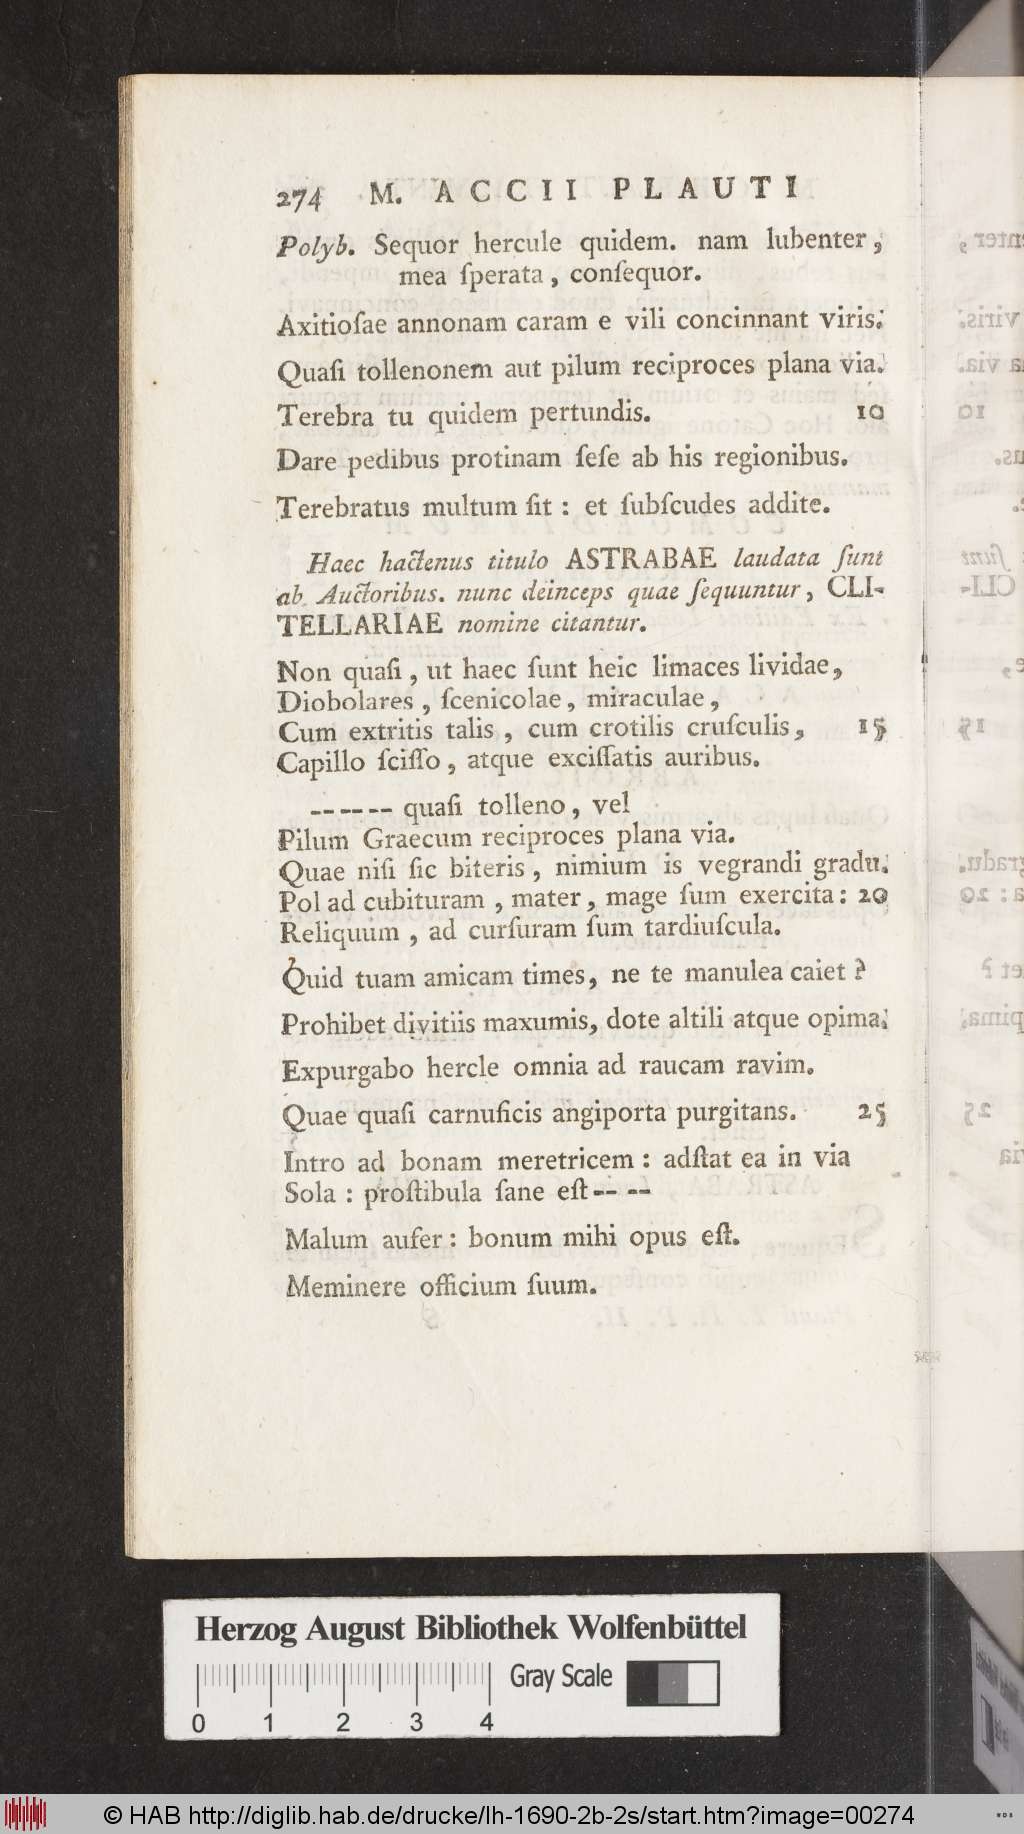 274 M. ACCII PLAUTI
Polyb. Sequor hercule quidem. nam lubenter,
mea ſperata, conſequor.
Axitioſae annonam caram e vili concinnant viris.
Quaſi tollenonem aut pilum reciproces plana via.
Terebra tu quidem pertundis. 10
Dare pedibus protinam ſeſe ab his regionibus.
Terebratus multum ſit : et ſubſcudes addite.
Haec hactenus titulo ASTRABAE laudata ſunt
ab Auctoribus. nunc deinceps quae ſequuntur, CLI-
TELLARIAE nomine citantur.
Non quaſi, ut haec ſunt heic limaces lividae,
Diobolares, ſcenicolae, miraculae,
Cum extritis talis, cum crotilis cruſculis, 15
Capillo ſciſſo, atque exciſſatis auribus.
------ quaſi tolleno, vel
Pilum Graecum reciproces plana via.
Quae niſi ſic biteris, nimium is vegrandi gradu.
Pol ad cubituram, mater, mage ſum exercita: 20
Reliquum, ad curſuram ſum tardiuſcula.
Quid tuam amicam times, ne te manulea caiet?
Prohibet divitiis maxumis, dote altili atque opima.
Expurgabo hercle omnia ad raucam ravim.
Quae quaſi carnuficis angiporta purgitans. 25
Intro ad bonam meretricem: adſtat ea in via
Sola : proſtibula ſane eſt-- --
Malum aufer: bonum mihi opus eſt.
Meminere officium ſuum.
Herzog August Bibliothek Wolfenbüttel
Gray Scale
0 1 2 3 4
© HAB http://diglib.hab.de/drucke/lh-1690-2b-2s/start.htm?image=00274